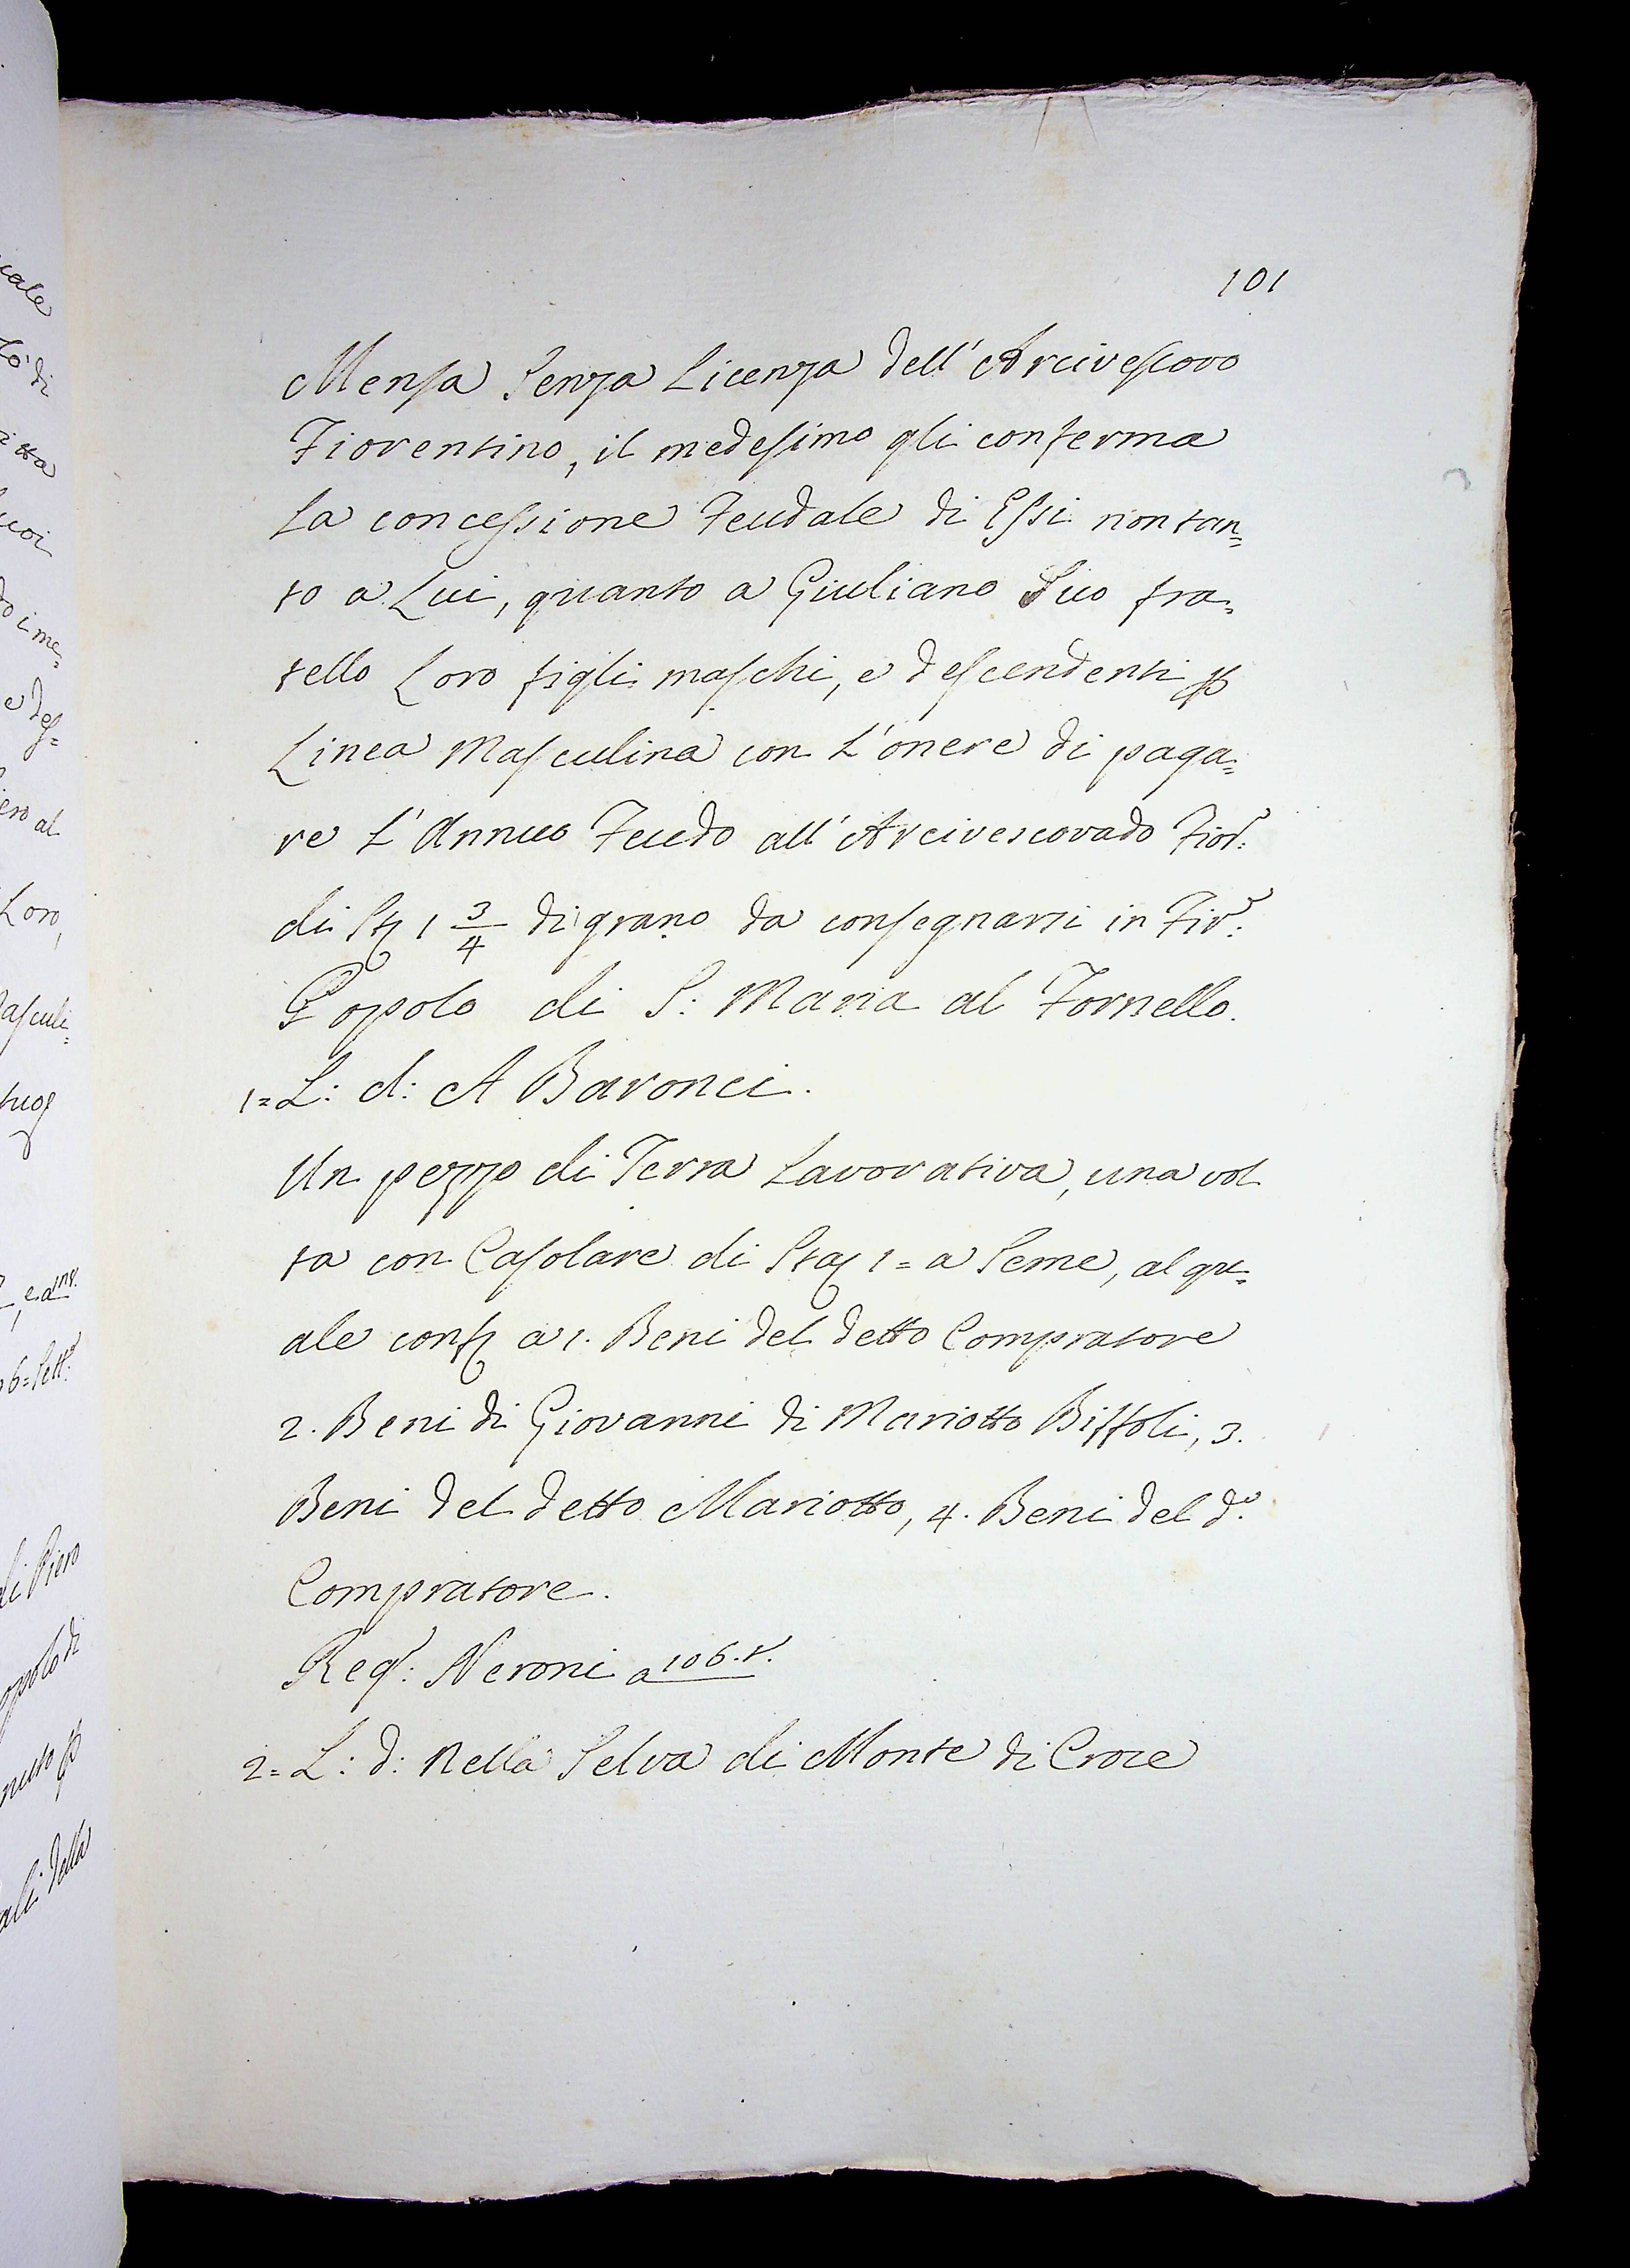 101
Mensa Senza Licenza dell'Arcivescovo
Fiorentino, il medesimo gli conferma
La concessione Feudale di Essi non tan=
to a Lui, quanto a Giuliano Suo fra=
tello Loro figli maschi, e descendenti p
Linea Masculina con L'onere di paga=
re L'Annuo Feudo all'Arcivescovado Fior:
di St 1 3/4 di grano da consegnarsi in Fir:
Popolo di S: Maria al Fornello.
1= L: d: A Baronci.
Un pezzo di Terra Lavorativa, una vol
ta con Casolare di Sta 1= a Seme, al qu=
ale conf a 1. Beni del detto Compratore
2. Beni di Giovanni di Mariotto Biffoli, 3.
Beni del detto Mariotto, 4. Beni del d.o
Compratore.
Reg: Neroni a 106.t.
2= L: d: Nella Selva di Monte di Croce